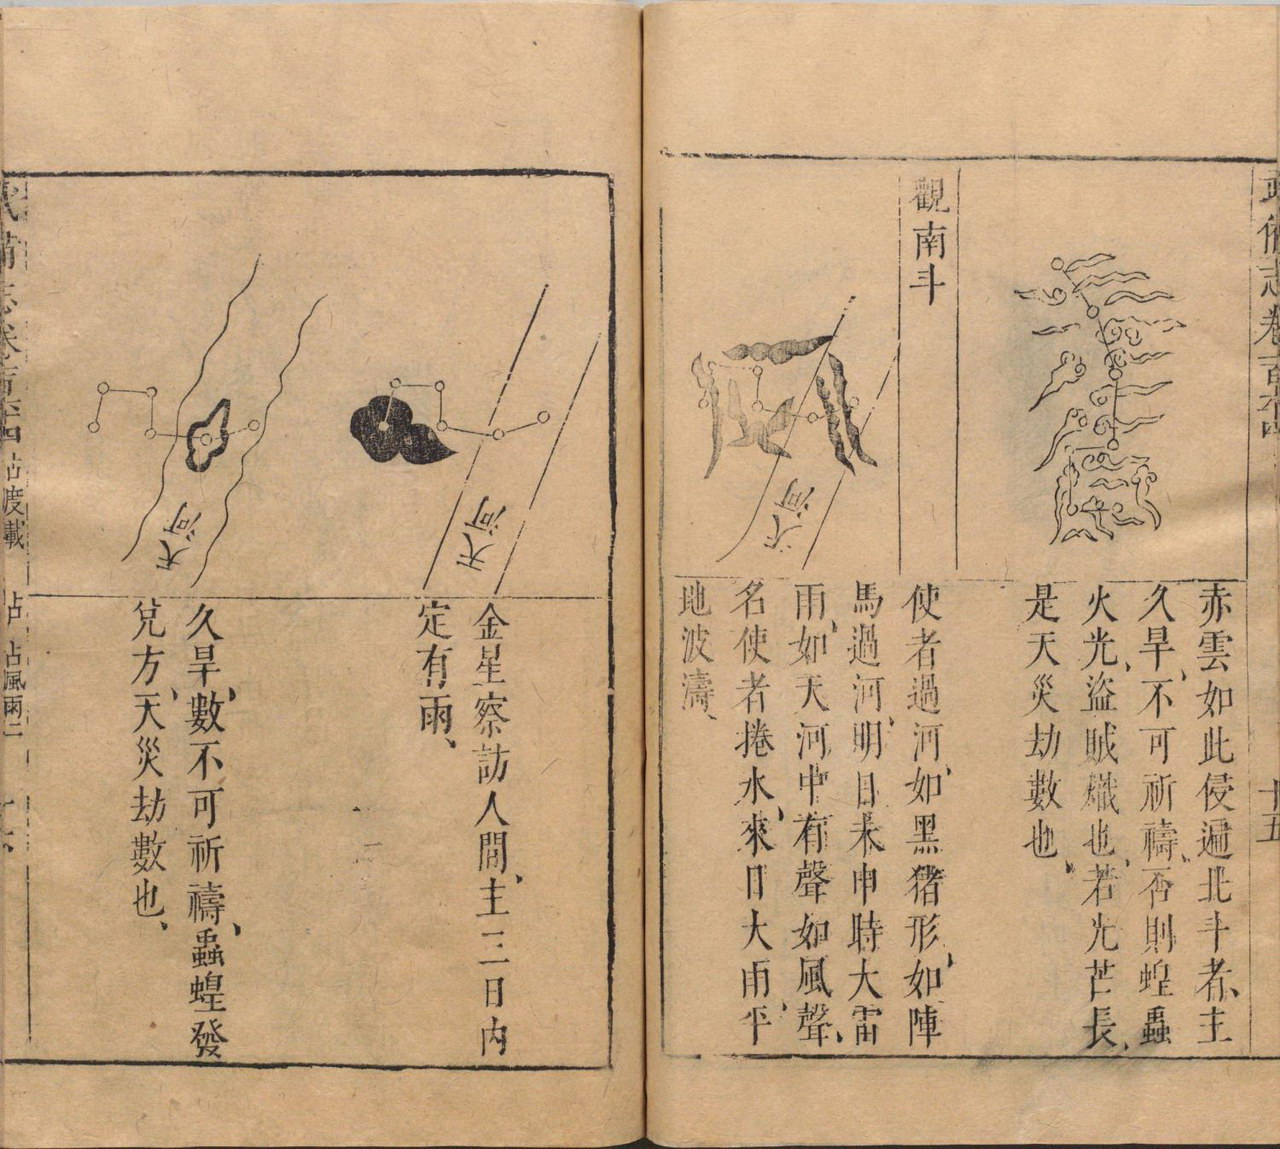 武備志卷一百六十四
十五
赤雲如此侵遍北斗者、主
久旱、不可祈禱、否則蝗蟲
火光、盜賊熾也、若光芒長、
是天災劫數也、
觀南斗
天河
使者過河、如黑猪形、如陣
馬過河、明日未申時大雷
雨、如天河中有聲如風聲、
名使者捲水、來日大雨平
地波濤、
天河
金星察訪人間、主三日内
定有雨、
天河
久旱、數不可祈禱、蟲蝗發
兌方、天災劫數也、
占度載 占 占風雨二